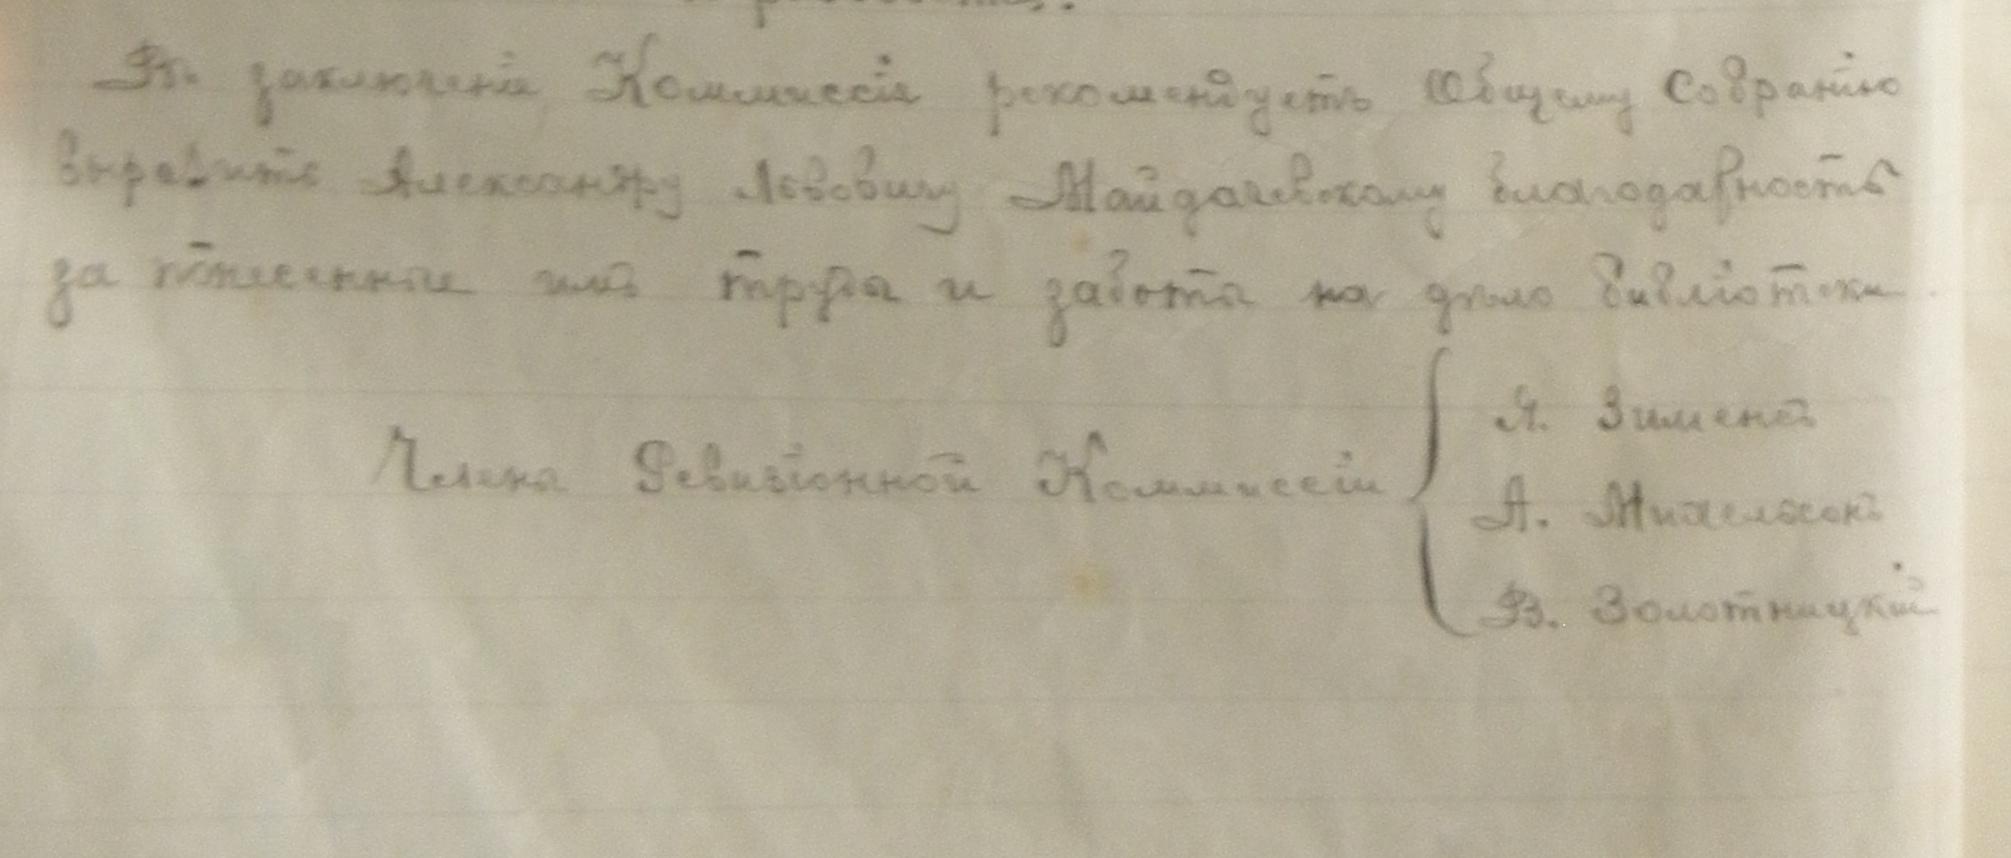 Въ заключеніи Коммиссія рекомендуетъ Общему Собранію
выразить Александру Львовичу Майдачевскому благодарность
за понесенные имъ труды и заботы на дѣло библіотеки.
Члены Ревизіонной Коммиссіи
Я. Зименъ
А. Михельсонъ
В. Золотницкій